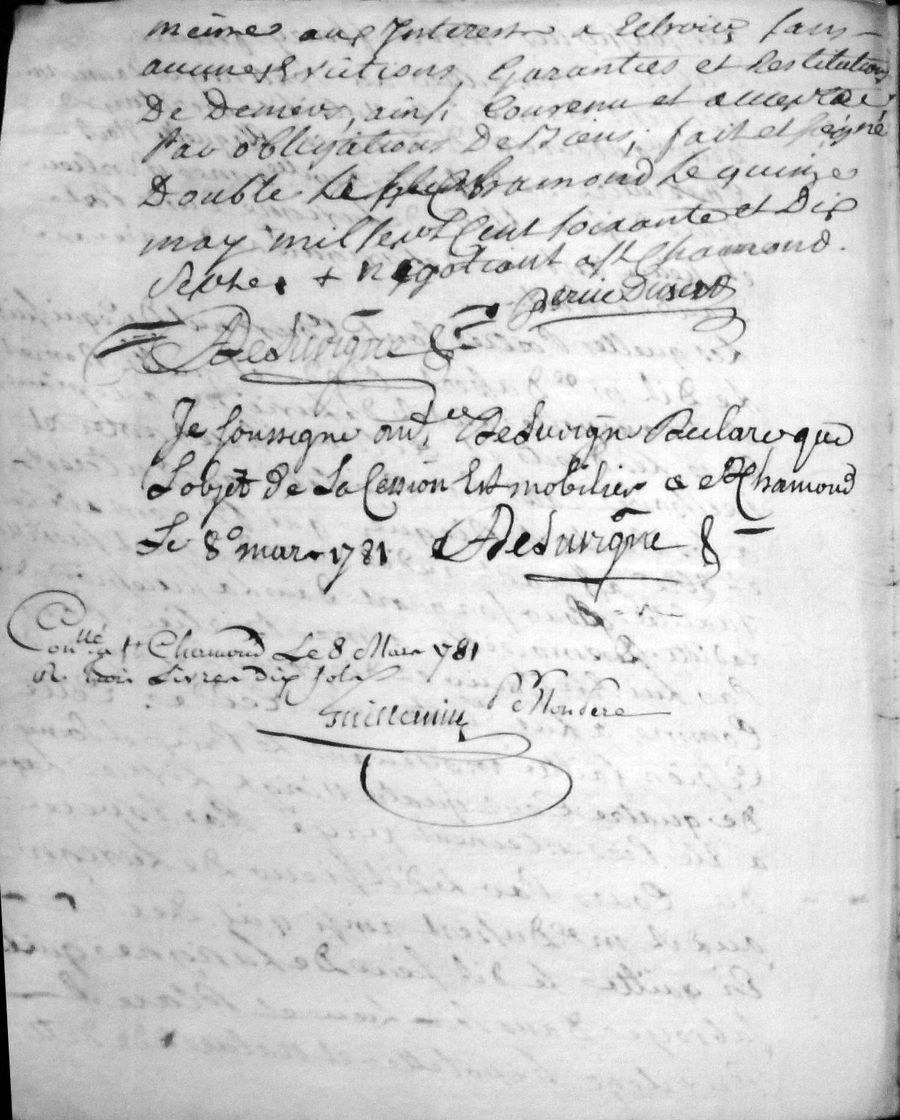 mêmes aux Interest a Echoir, sans
aucunes Evictions, Garanties et Restitution
De Deniers, ainsi Convenu et accepté
Par obligations De Biens, fait et signé
Double St Chamond Le quinze
may mille sept Cent soixante et Dix
Septe + négotiant a St Chamond.
Desuvigne
Je soussigne Desuvigne Declare que
L'objet de La Cession Est mobilier a St Chamond
Le 8e mars 1781 Desuvigne
Con.lé a St Chamond Le 8 Mars 1781
R. trois Livres Dix sols
Guillemin